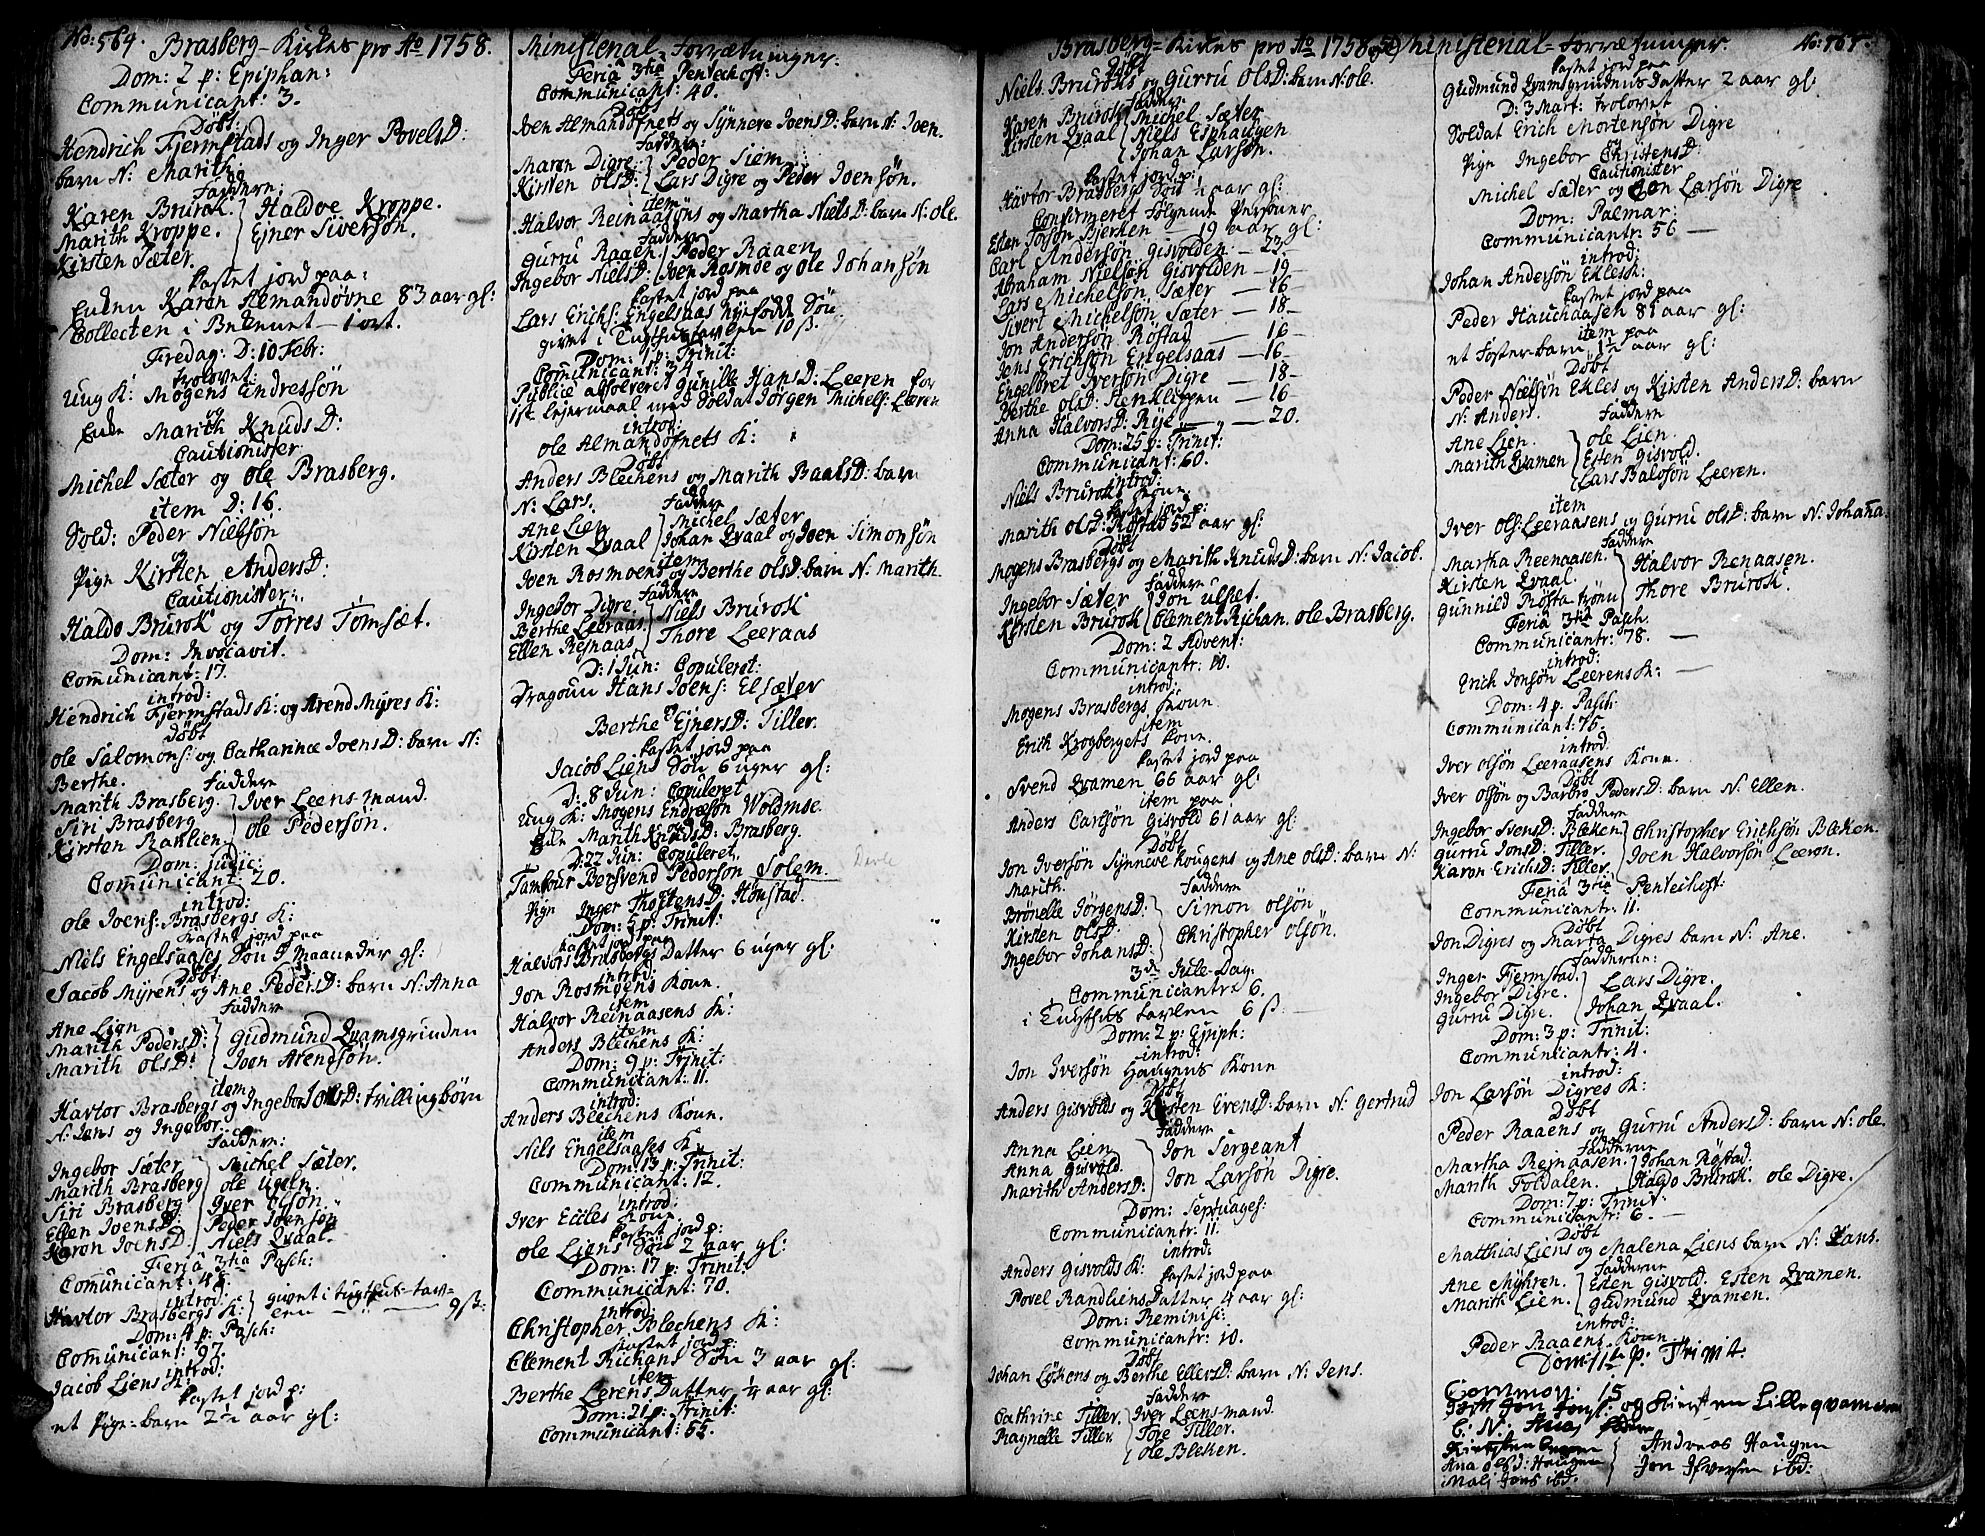 No: 564. Brasberg-Kirkes pro Ao 1758.
Dom: 2 p: Epiphan:
Communicant: 3.
Døbt:
Hendrich Fjermstads og Inger PovelsD:
barn N: Marith.
Faddere:
Karen Brurok. Haldoe Kroppe.
Marith Kroppe. Ejner Siversøn.
Kirsten Sæter.
Kastet jord paa:
Enken Karen Almandøvne 83 aar gl:
Collecten i Bekenet - 1 ort.
Fredag: D: 10 Febr:
trolovet:
Ung K: Mogens Endressøn
og
Enke Marith KnudsD:
Cautionister
Michel Sæter og Ole Brasberg.
item D: 16.
Sold: Peder Nielsøn
og
Pign Kirsten AndersD:
Cautionister:
Haldo Brurok og Torres Tømsæt.
Dom: Invocavit.
Comunicant: 17.
introd:
Hendrich Fjermstads K: og Arend Myres K:
Døbt
Ole Salomons: og Catharina JoensD: barn N:
Berthe. Faddere
Marith Brasberg. Iver Leens-mand.
Siri Brasberg Ole Pedersøn.
Kirsten Ranlien.
Dom: Judic:
Comunicant: 20.
introd:
Ole Joens: Brasbergs K:
Kastet jord paa
Niels Engelsaases Søn 9 Maaneder gl:
Døbt
Jacob Myrens og Ane PedersD: barn N: Anna
Faddere
Ane Lien Gudmund Qvamsgrinden
Marith PedersD: Joen Arendsøn.
Marith OlsD:
item
Havtor Brasbergs og Ingebor JonsD: tvillingbørn
N: Jens og Ingebor.
Faddere:
Ingebor Sæter Michel Sæter.
Marith Brasberg Ole Ugeln.
Siri Brasberg Iver Elsøn.
Ellen JoensD: Peder Joensøn
Karen JoensD. Niels Qvaal.
Feria 3tia Pasch:
Comunicant: 48.
introd: givet i tugthus-tav-
Havtor Brasbergs K: len 9 ß:
Dom: 4 p: Pasch:
Comunicant: 97.
introd:
Jacob Liens K:
Kastet jord p:
et Pige-barn 2½ aar gl:
Ministerial-Forrætninger.
Feria 3tia Pentechost:
Communicant: 40.
Døbt
Joen Almandøfnets og Synnere JoensD: barn N: Joen.
Faddere:
Maren Digre. Peder Siem
Kirsten OlsD: Lars Digre og Peder Joensøn.
item
Halvor Reinaasøns og Martha NielsD: barn N: Ole.
Faddere
Gurru Raaen. Peder Raaen
Ingebor NielsD: Joen Rosmoe og Ole Johansøn
Kastet jord paa
Lars Erichs: Engelsaas nyefødt Søn
givet i Tugthustavlen 10 ß.
Dom: 1 p: Trinit:
Comunicant: 34.
Publice absolveret Gunille HansD: Leeren for
1st lejermaal med Soldat Jørgen Michels: Leeren
introd:
Ole Almandøfnets K:
Døbt
Anders Blechens og Marith BaalsD: barn
N: Lars. Faddere
Ane Lien Michel Sæter
Kirsten Qvaal Johan Qvaal og Joen Simonsøn
item
Joen Rosmoens og Berthe OlsD: barn N: Marith.
Faddere
Ingebor Digre. Niels Brurok
Berthe Leeraas. Thore Leeraas
Ellen Rejnaas
D: 1 Jun: Copuleret:
Dragoun Hans Joens: Elsæter
og
Berthe EjnersD: Tiller.
Kastet jord paa
Jacob Liens Søn 6 uger gl:
D: 8 Jun: Copuleret
Ung K: Mogens Endresøn Woldmoe.
og
Enke Marith KnudsD: Brasberg.
D: 22 Jun: Copuleret.
Tambur Bersvend Pedersøn Solem.
og
Pige Inger ThostensD: Hønstad.
Dom: 5 p: Trinit:
Kastet jord paa
Halvors Brasbergs Datter 6 uger gl:
introd:
Jon Rosmoens Kone.
item
Halvor Reinaasens K:
item
Anders Blechens K:
Dom: 9 p: Trinit:
Communicant: 11.
introd:
Anders Blechens Kone.
item
Nils Engelsaases K:
Dom: 13 p: Trinit:
Communicant: 12.
introd:
Iver Eccles Kone
Kastet jord p:
Ole Liens Søn 2 aar gl:
Dom: 17 p: Trinit:
Communicant: 70.
introd:
Christopher Blechens K:
Kastet jord p:
Clement Richans Søn 3 aar gl:
item
Berthe Lerens Datter ¼ aar gl:
Dom: 21 p: Trinit:
Communicant: 55.
Brasberg-Kirkes pro Ao 1758 Ministerial-Forrætninger. No: 565.
Døbt
Niels Bruroks og Gurru OlsD: barn N: Ole.
Faddere
Karen Brurok Michel Sæter
Kirsten Qvaal Niels Esphaugen
Johan Larsøn.
Kastet jord p:
Havtor Brasbergs Søn ½ aar gl:
Confirmeret følgende Personer
Esten Joensøn Bjerken - 19 aar gl:
Carl Andersøn Gisvolden - 23 -
Abraham Nielsøn Gisvolden - 19 -
Lars Michelsøn Sæter - 16 -
Sivert Michelsøn Sæter - 18 -
Jon Andersøn Røstad - 16 -
Jens Erichsøn Engelsaas - 16 -
Engelbret Iversøn Digre - 18 -
Berthe OlsD: Stenklippen - 16 -
Anna HalvorsD: Rye - 20.
Dom: 25 p: Trinit:
Communicant: 60.
introd:
Niels Bruroks Kone.
Kastet jord p:
Marith OlsD: Røstad 52 aar gl:
Døbt
Mogens Brasbergs og Marith KnudsD: barn N: Jacob.
Faddere
Ingebor Sæter Jon Ulset.
Kirsten Brurok Clement Richan. Ole Brasberg.
Dom: 2 Advent:
Communicantr: 10.
introd:
Mogens Brasbergs Kone
item
Erich Krogbergets Kone.
Kastet jord paa
Svend Qvamen 66 aar gl:
item paa
Anders Carlsøn Gisvold 61 aar gl:
Døbt
Jon Iversøn Synneve Hougens og Ane OlsD: barn N:
Marith. Faddere
Brønelle JørgensD: Simon Olsøn
Kirsten OlsD: Christopher Olsøn.
Ingebor JohansD:
3die Jule-Dag.
Communicantr: 6.
i Tugthus tavlen 6 ß.
Dom: 2 p: Epiph:
introd:
Jon Iversøn Haugens Kone
Døbt
Anders Gisvolds og Kirsten EvensD: barn N: Gertrud
Faddere
Anna Lien Jon Sergeant
Anna Gisvold. Jon Larsøn Digre.
Marith AndersD:
Dom: Septuages:
Communicantr: 11.
introd:
Anders Gisvolds K:
Kastet jord paa
Povel Randliens Datter 4 aar gl:
Dom: Reminisc:
Communicantr: 10.
Døbt
Johan Løkens og Berthe EllersD: barn N: Jens.
Faddere
Cathrine Tiller. Iver Leens-mand.
Ragnelle Tiller. Tore Tiller.
Ole Bleken.
Kastet jord paa
Gudmund Qvamsgrindens Datter 2 aar gl:
D: 3 Mart: trolovet
Soldat Erich Mortensøn Digre
og
Pign Ingebor ChristensD:
Cautionister
Michel Sæter og Jon Larsøn Digre
Dom: Palmar:
Communicantr: 56
introd:
Johan Andersøn Ekles K:
Kastet jord paa
Peder Hauchaasen 81 aar gl:
item paa
et Foster-barn 1½ aar gl:
Døbt
Peder Nielsøn Ekles og Kirsten AndersD: barn
N: Anders. Faddere
Ane Lien. Ole Lien.
Marith Qvamen Esten Gisvold.
Lars Balosøn Leeren.
item
Iver Ols: Leeraasens og Gurru OlsD: barn N: Johaña.
Faddere
Martha Reenaasen. Halvor Renaasen.
Kirsten Qvaal. Thore Brurok.
Gunnild Røsta trønu
Feria 3tia Pasch.
Communicantr: 78.
introd:
Erich Jonsøn Leerens K:
Dom: 4 p: Pasch:
Communicant: 75.
introd.
Iver Olsøn Leeraasens Kone.
Døbt
Iver Olsøn og Barbro PedersD: barn N: Ellen.
Faddere
Ingebor SvensD: Bleken Christopher Erichsøn Bleken.
Gurru JonsD: Tiller. Joen Halvorsøn Leeron.
Karen ErichsD: Tiller.
Feria 3tia Pentechost:
Communicantr: 11.
Døbt
Jon Digres og Marta Digres barn N: Ane.
Fadderne:
Inger Fjermstad. Lars Digre.
Ingebor Digre. Johan Qvaal.
Gurru Digre.
Dom: 3 p: Trinit:
Communicantr: 4.
introd:
Jon Larsøn Digres K:
Døbt
Peder Raaens og Gurru AndersD: barn N: Ole.
Fadderne
Martha Rejnaasen. Johan Røstad.
Marith Foldalen. Haldo Brurok. Ole Digre.
Dom: 7 p: Trinit:
Communicantr: 6.
Døbt
Matthias Liens og Malena Liens barn N: Hans.
Fadderne
Ane Myhren. Esten Gisvold. Esten Qvamen.
Marith Lien. Gudmund Qvamen.
introd:
Peder Raaens Kone
Dom: 11te p: Trinit.
Common: 15
Jon Jons: og Kiersten Lille qvamen
B: N: Ana, Faddere
Andreas Haugen
Ana OlsD: Haugen Jon Ifversen ibd:
Mali Jons ibd: